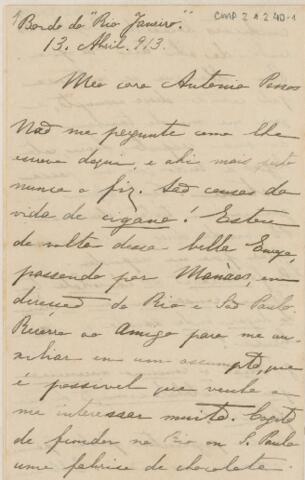 Bordo do "Rio Janeiro".
CMP 2.1.2.40-1
13. Abril. 913.
Meo caro Antonio
Não me pergunte como lhe
escrevo daqui, e ahi mais perto
nunca o fiz. São causas da
vida de cigano! Estou
de volta dessa bella Europa,
passando por Manáos, em
direcção do Rio e São Paulo.
Recorro ao Amigo para me au-
xiliar em um assumpto, que
é possivel que venha
me interessar muito. Cogito
de fundar no Rio ou S. Paulo
uma fabrica de chocolate.